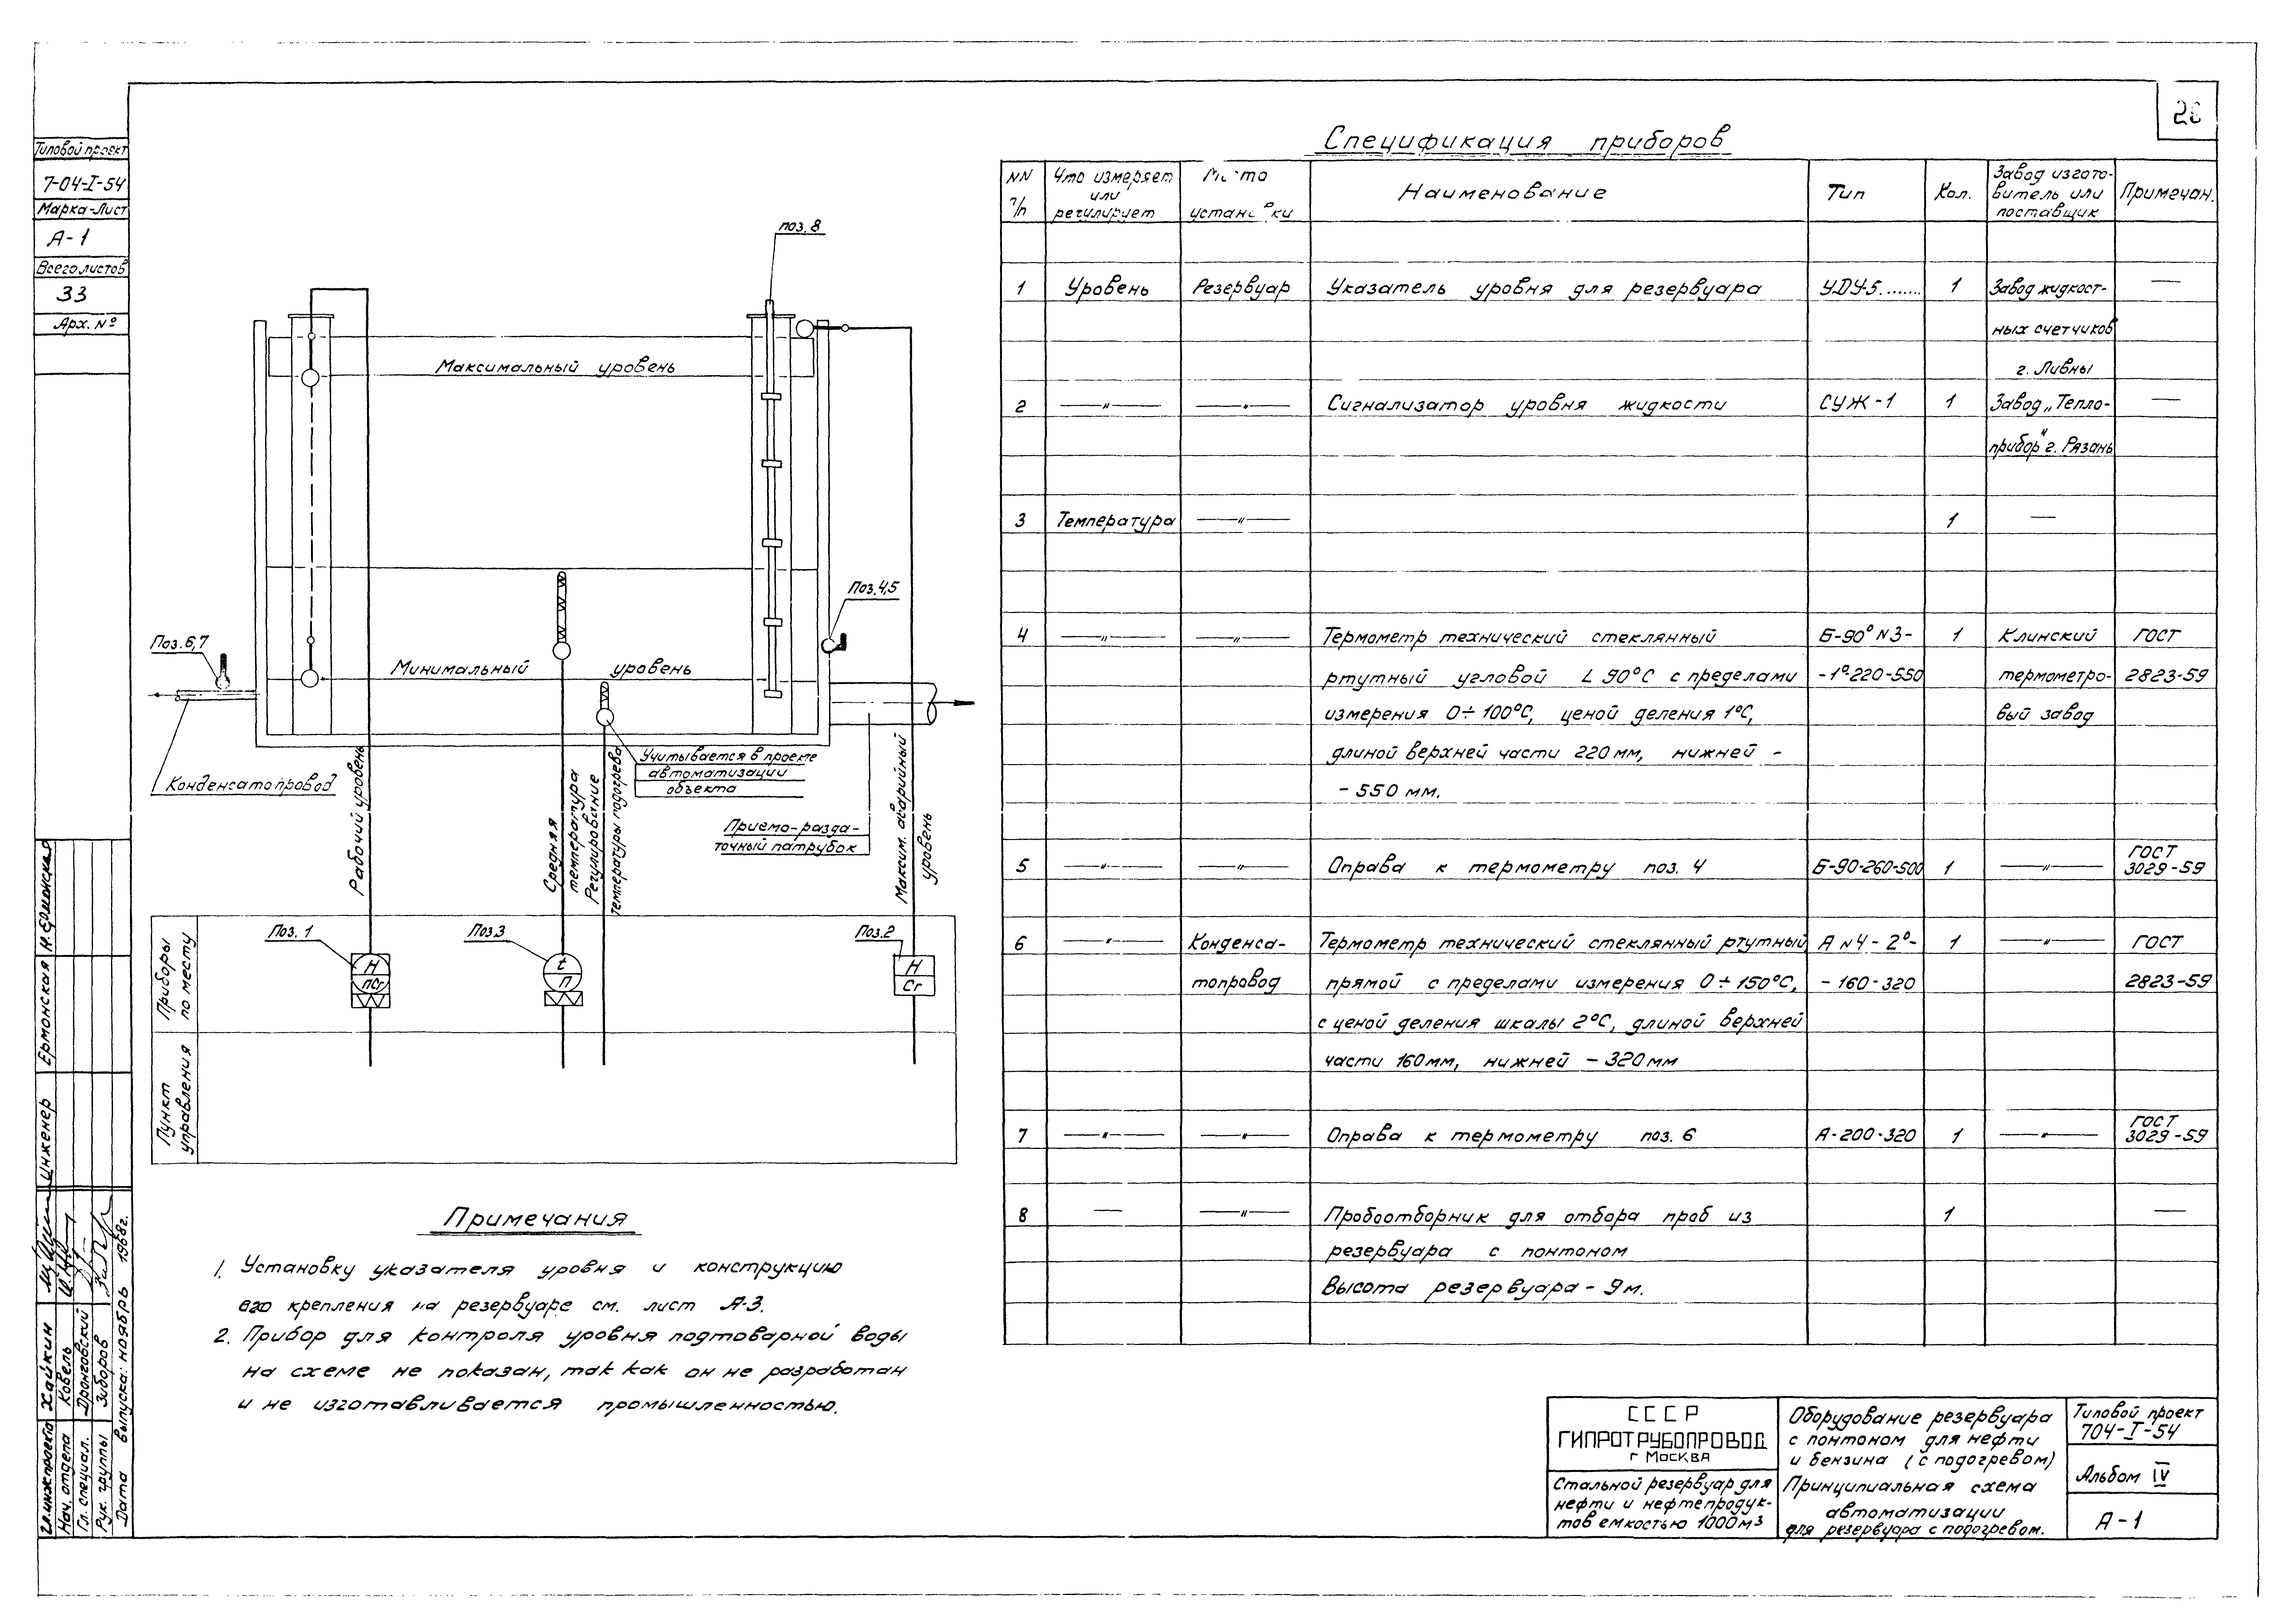 28
Типовой проект
7-04-I-54
Марка-Лист
А-1
Всего листов
33
Арх. №
поз. 8
Максимальный уровень
Поз. 4,5
Поз. 6,7
Минимальный уровень
Конденсатопровод
Учитывается в проекте
автоматизации
объекта
Приемо-разда-
точный патрубок
Рабочий уровень
Средняя
температура
Регулирование
температуры подогрева
Максим. аварийный
уровень
Приборы
по месту
Поз. 1
Н
ПСг
Поз 3
t
П
Поз. 2
Н
Сг
Пункт
управления
Примечания
1. Установку указателя уровня и конструкцию
его крепления на резервуаре см. лист А-3.
2. Прибор для контроля уровня подтоварной воды
на схеме не показан, так как он не разработан
и не изготавливается промышленностью.
Спецификация приборов
NN п/п | Что измеряет или регулирует | Место установки | Наименование | Тип | Кол. | Завод изгото-витель или поставщик | Примечан.
1 Уровень Резервуар Указатель уровня для резервуара УДУ-5....... 1 Завод жидкост- —
ных счетчиков
г. Ливны
2 —"— —"— Сигнализатор уровня жидкости СУЖ-1 1 Завод „Тепло- —
прибор" г. Рязань
3 Температура —"— 1 —
4 —"— —"— Термометр технический стеклянный Б-90° N3- 1 Клинский ГОСТ
ртутный угловой L 90°С с пределами -1°-220-550 термометро- 2823-59
измерения 0÷100°С, ценой деления 1°С, вый завод
длиной верхней части 220 мм, нижней -
- 550 мм.
5 —"— —"— Оправа к термометру поз. 4 Б-90-260-500 1 —"— ГОСТ 3029-59
6 —"— Конденса- Термометр технический стеклянный ртутный А N4 - 2°- 1 —"— ГОСТ
топровод прямой с пределами измерения 0÷150°С, - 160-320 2823-59
с ценой деления шкалы 2°С, длиной верхней
части 160мм, нижней - 320мм
7 —"— —"— Оправа к термометру поз. 6 А-200-320 1 —"— ГОСТ 3029-59
8 — —"— Пробоотборник для отбора проб из 1 —
резервуара с понтоном
Высота резервуара - 9м.
СССР
ГИПРОТРУБОПРОВОД
г Москва
Стальной резервуар для
нефти и нефтепродук-
тов емкостью 1000м3
Оборудование резервуара
с понтоном для нефти
и бензина (с подогревом)
Принципиальная схема
автоматизации
для резервуара с подогревом.
Типовой проект
704-I-54
Альбом IV
А-1
Гл. инж. проекта Хайкин
Нач. отдела Ковель
Гл. специал. Дронговский
Рук. группы Зиборов
Дата выпуска: ноябрь 1968г.
Инженер Ермонская